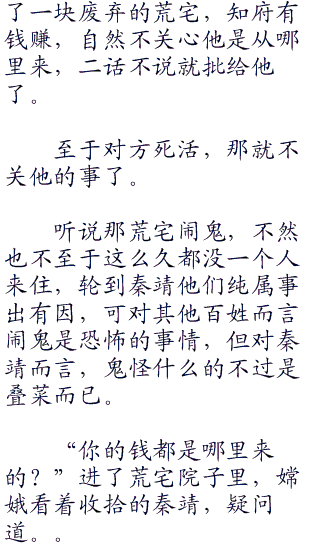 了一块废弃的荒宅，知府有
钱赚，自然不关心他是从哪
里来，二话不说就批给他
了。
至于对方死活，那就不
关他的事了。
听说那荒宅闹鬼，不然
也不至于这么久都没一个人
来住，轮到秦靖他们纯属事
出有因，可对其他百姓而言
闹鬼是恐怖的事情，但对秦
靖而言，鬼怪什么的不过是
叠菜而已。
“你的钱都是哪里来
的？”进了荒宅院子里，嫦
娥看着收拾的秦靖，疑问
道。。